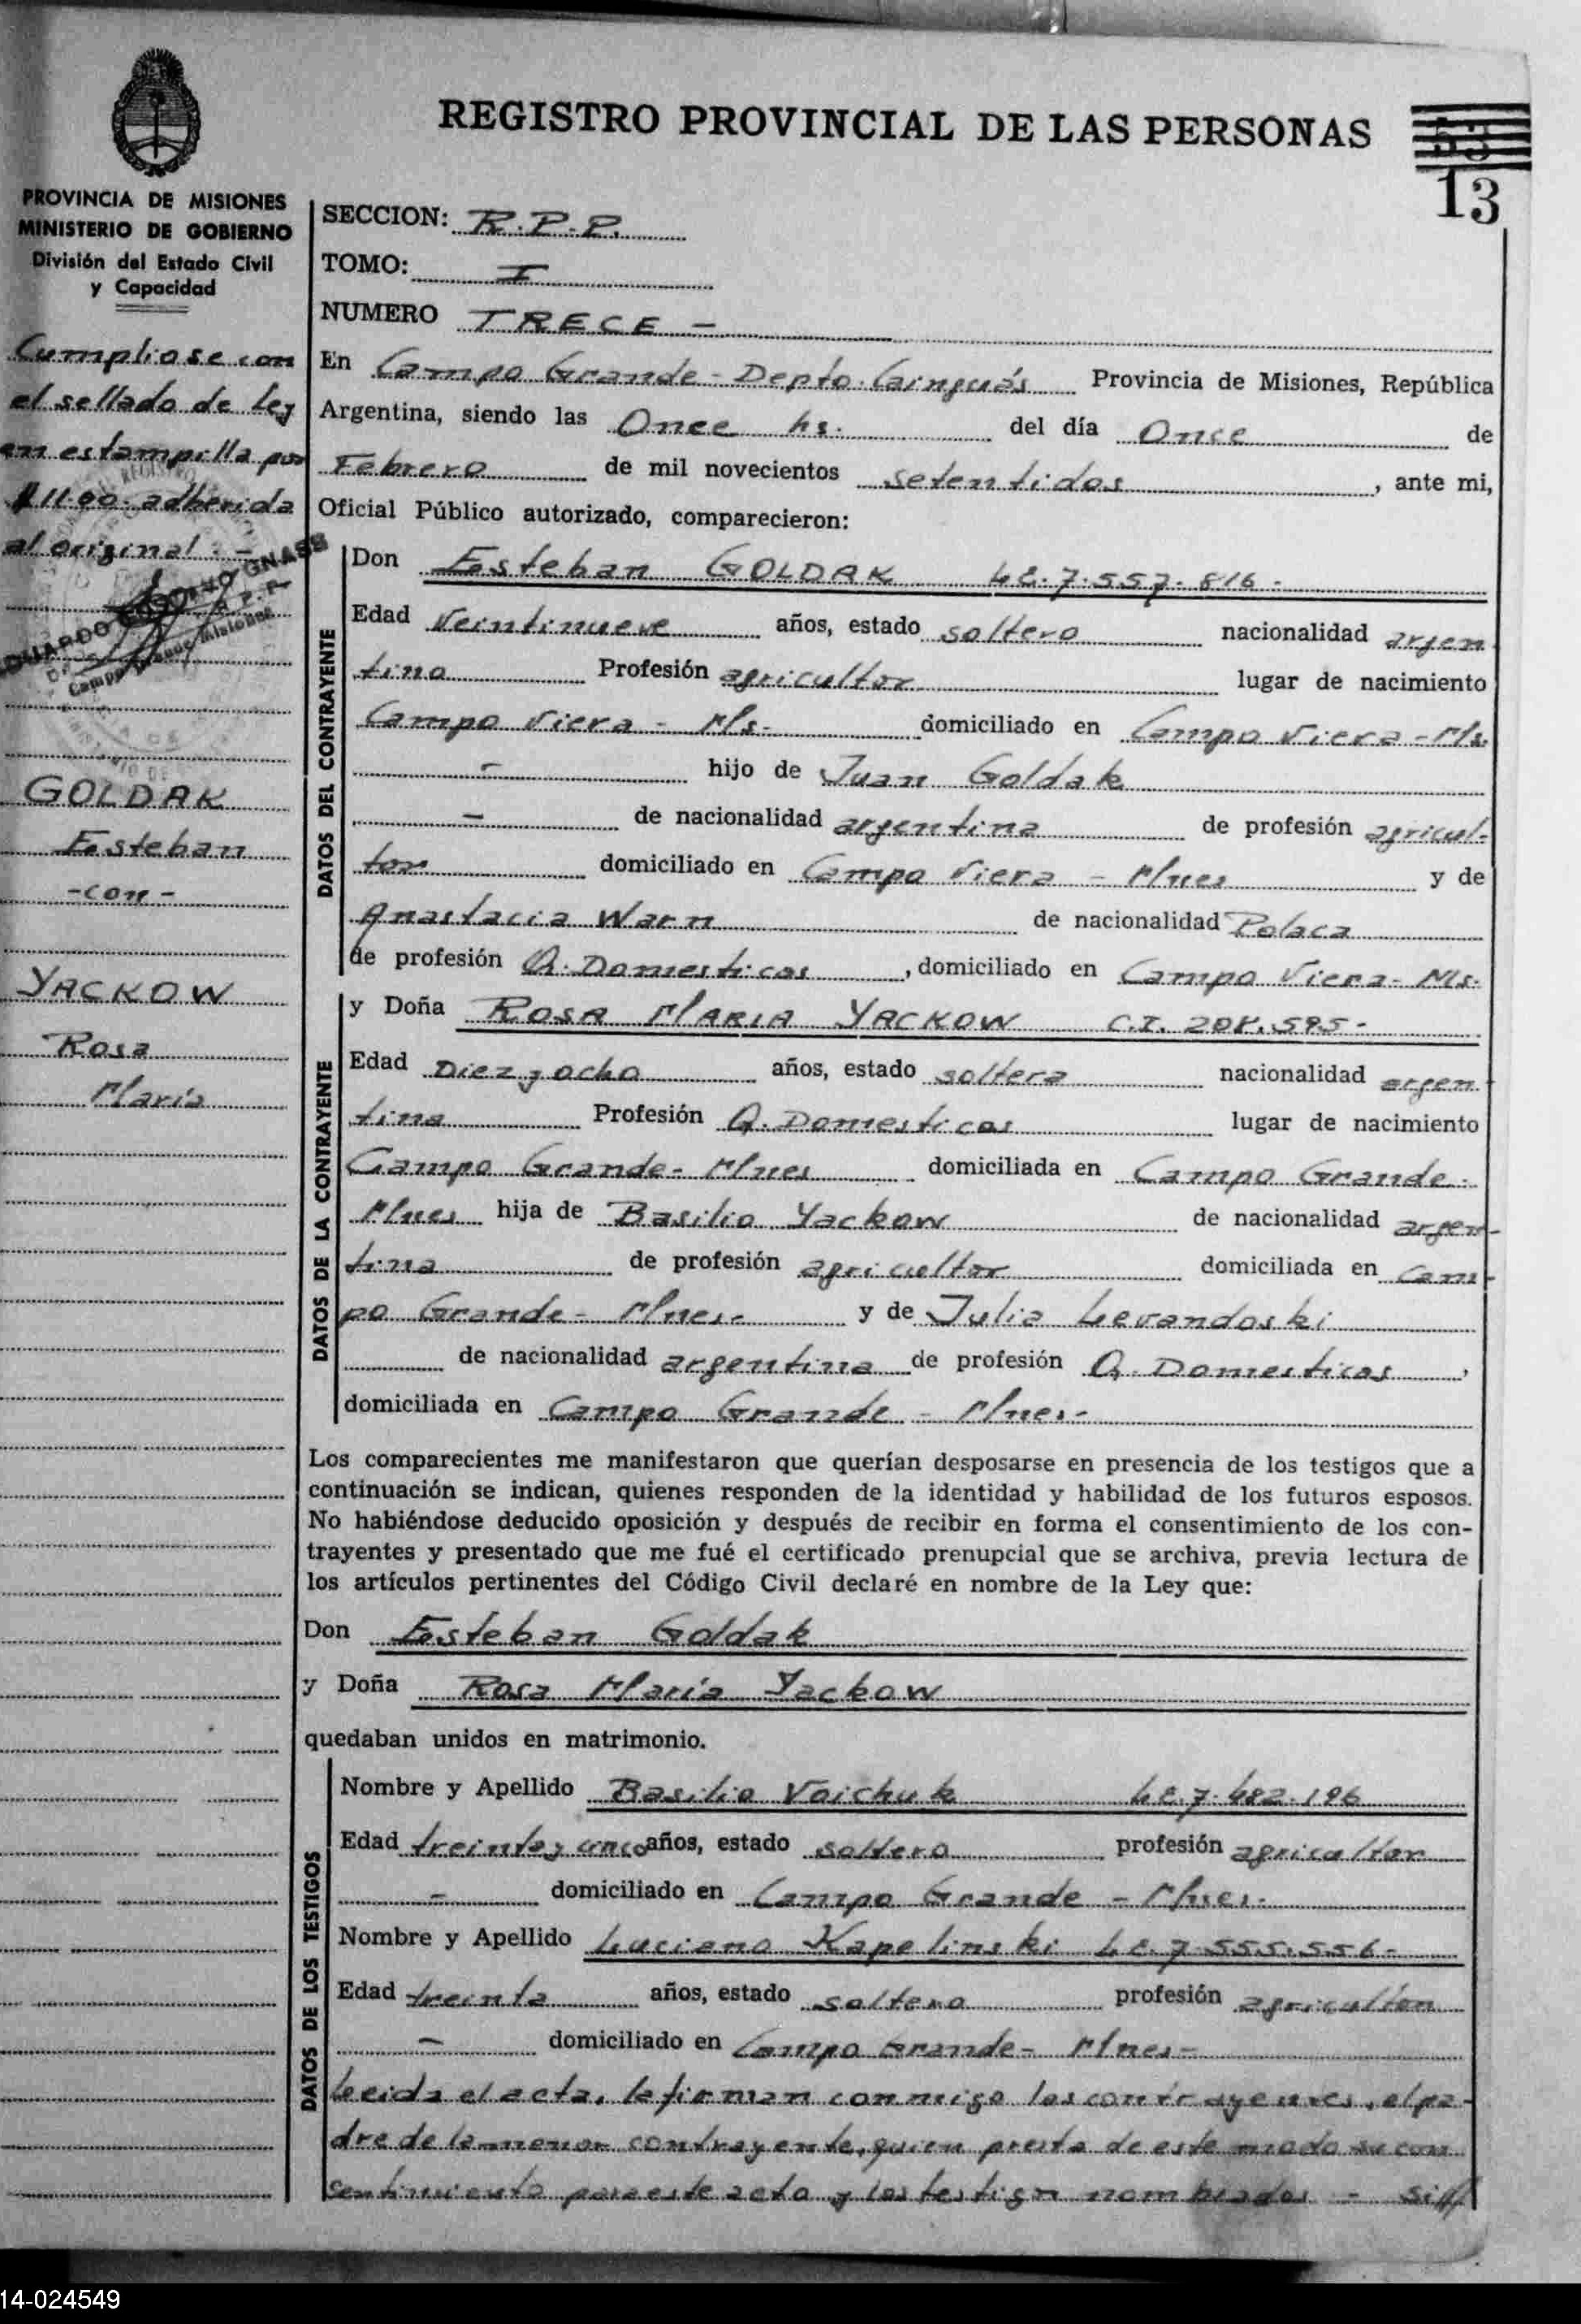 REGISTRO PROVINCIAL DE LAS PERSONAS
53
13
PROVINCIA DE MISIONES
MINISTERIO DE GOBIERNO
División del Estado Civil
y Capacidad
Cumpliose con
el sellado de Ley
en estampilla por
$ 11.00 adherida
al original : -
Campo Grande Misiones
GOLDAK
Esteban
- con -
YACKOW
Rosa
María
SECCION: R.P.P.
TOMO: I
NUMERO TRECE -
En Campo Grande - Depto. Cainguás Provincia de Misiones, República
Argentina, siendo las Once hs. del día Once de
Febrero de mil novecientos setentidos, ante mi,
Oficial Público autorizado, comparecieron:
DATOS DEL CONTRAYENTE
Don Esteban GOLDAK L.E. 7.557.816 -
Edad Veintinueve años, estado soltero nacionalidad argen
tina Profesión agricultor lugar de nacimiento
Campo Viera - Ms- domiciliado en Campo Viera - Ms.
- hijo de Juan Goldak
- de nacionalidad argentina de profesión agricul-
tor domiciliado en Campo Viera - Mnes y de
Anastacia Warn de nacionalidad Polaca
de profesión Q. Domesticos, domiciliado en Campo Viera - Ms.
DATOS DE LA CONTRAYENTE
y Doña ROSA MARIA YACKOW C.I. 208.595 -
Edad Diez y ocho años, estado soltera nacionalidad argen
tina Profesión Q. Domesticos lugar de nacimiento
Campo Grande - Mnes domiciliada en Campo Grande -
Mnes hija de Basilio Yackow de nacionalidad argen-
tina de profesión agricultor domiciliada en Cam-
po Grande - Mnes - y de Julia Levandoski
de nacionalidad argentina de profesión Q. Domesticos,
domiciliada en Campo Grande - Mnes -
Los comparecientes me manifestaron que querían desposarse en presencia de los testigos que a
continuación se indican, quienes responden de la identidad y habilidad de los futuros esposos.
No habiéndose deducido oposición y después de recibir en forma el consentimiento de los con-
trayentes y presentado que me fué el certificado prenupcial que se archiva, previa lectura de
los artículos pertinentes del Código Civil declaré en nombre de la Ley que:
Don Esteban Goldak
y Doña Rosa María Yackow
quedaban unidos en matrimonio.
DATOS DE LOS TESTIGOS
Nombre y Apellido Basilio Voichuk L.E. 7.482.196
Edad treinta y cinco años, estado soltero profesión agricultor
- domiciliado en Campo Grande - Mnes -
Nombre y Apellido Luciano Kapelinski L.E. 7.555.556 -
Edad treinta años, estado soltero profesión agricultor
- domiciliado en Campo Grande - Mnes -
Leida el acta, la firman conmigo los contrayentes, el pa-
dre de la menor contrayente, quien presta de este modo su con
sentimiento para este acto y los testigos nombrados -
14-024549